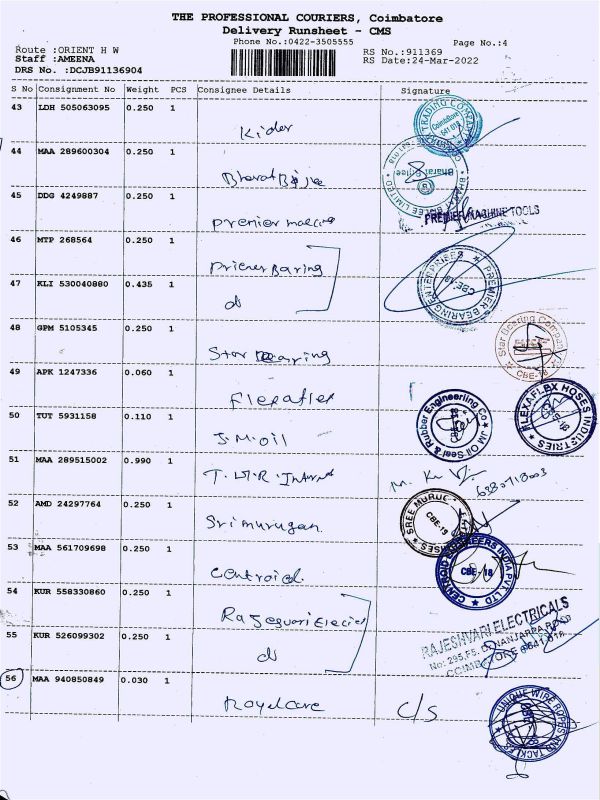 THE PROFESSIONAL COURIERS, Coimbatore
Delivery Runsheet - CMS
Phone No.:0422-3505555
Page No.:4
Route :ORIENT H W
RS No.:911369
Staff :AMEENA
RS Date:24-Mar-2022
DRS No. :DCJB91136904
S No Consignment No Weight PCS Consignee Details Signature
43 LDH 505063095 0.250 1
Kider
44 MAA 289600304 0.250 1
Bharat Bijlee
45 DDG 4249887 0.250 1
Premier
PREMIER MACHINE TOOLS
46 MTP 268564 0.250 1
47 KLI 530040880 0.435 1
PREMIER BEARING ENTERPRISES
CBE-18
48 GPM 5105345 0.250 1
Star Bearing
Star Bearing Company
CBE-18
49 APK 1247336 0.060 1
Flexaflex
FLEXAFLEX HOSES INDUSTRIES
50 TUT 5931158 0.110 1
J.M.oil
JM Oil Seal & Rubber Engineering Co
51 MAA 289515002 0.990 1
52 AMD 24297764 0.250 1
Sri murugan
CBE-19
53 MAA 561709698 0.250 1
Centroid
CENTROID ENGINEERS INDIA PVT LTD
CBE-18
54 KUR 558330860 0.250 1
55 KUR 526099302 0.250 1
RAJESHVARI ELECTRICALS
56 MAA 940850849 0.030 1
Royalcare
C/S
UNIQUE WIRE ROPES AND TACKLES